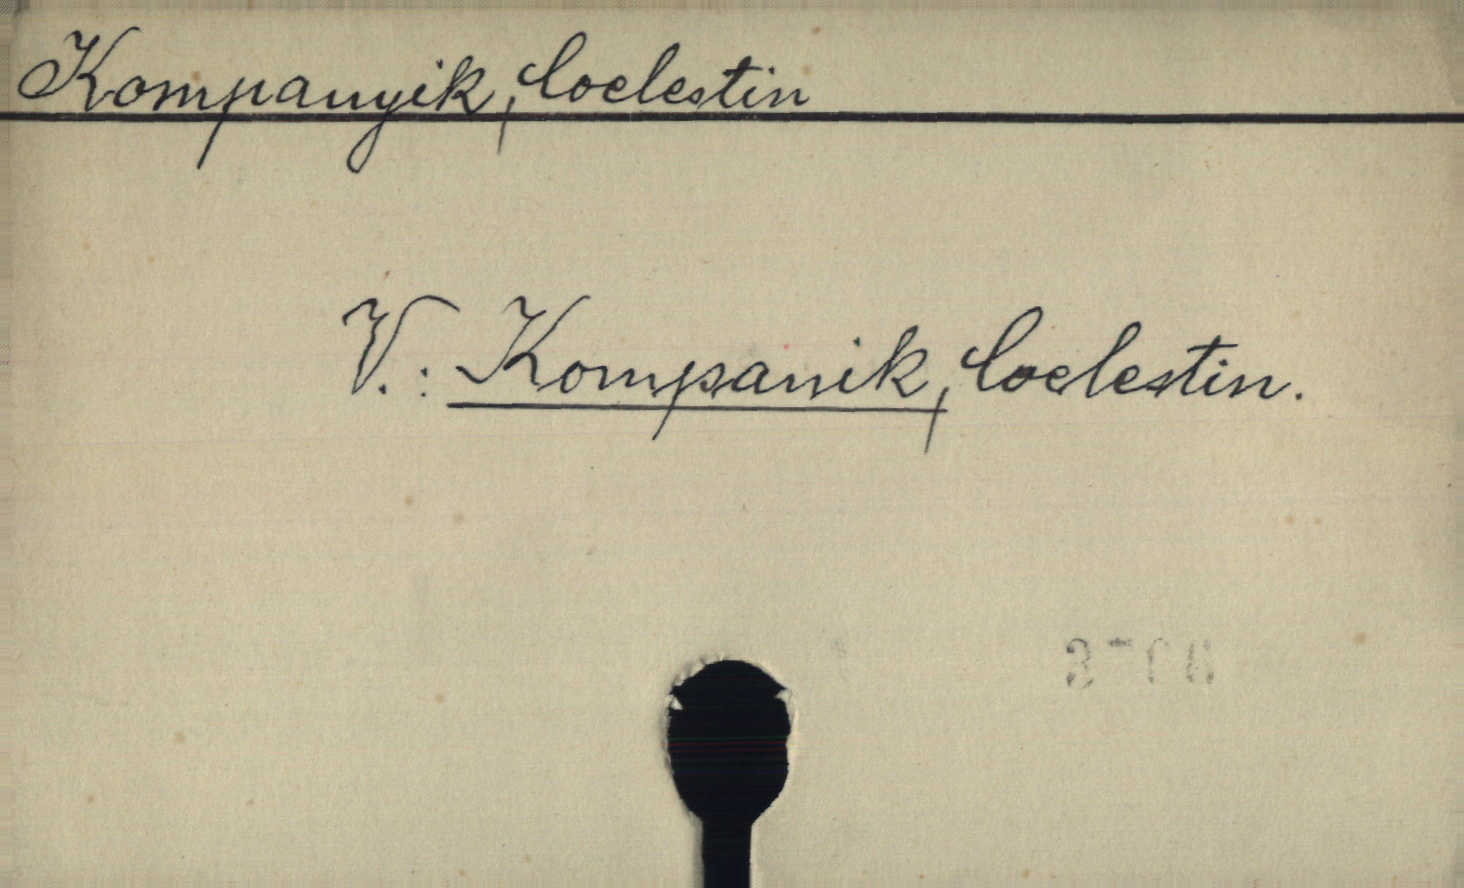 Kompanyik, Coelestin
V.: Kompanik, Coelestin.